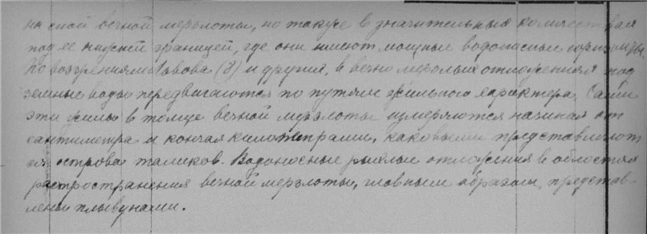 ны слой вечной мерзлоты, но также в значительных количествах
под ее нижней границей, где они имеют мощные водоносные горизонты.
По воззрениям Львова (8) и других, в вечно мерзлых отложениях под
земные воды передвигаются по путям жильного характера. Сами
эти жилы в толще вечной мерзлоты измеряются начиная от
сантиметра и кончая километрами, каковыми представляют
ся острова таликов. Водоносные рыхлые отложения в областях
распространения вечной мерзлоты, главным образом, представ-
лены плывунами.